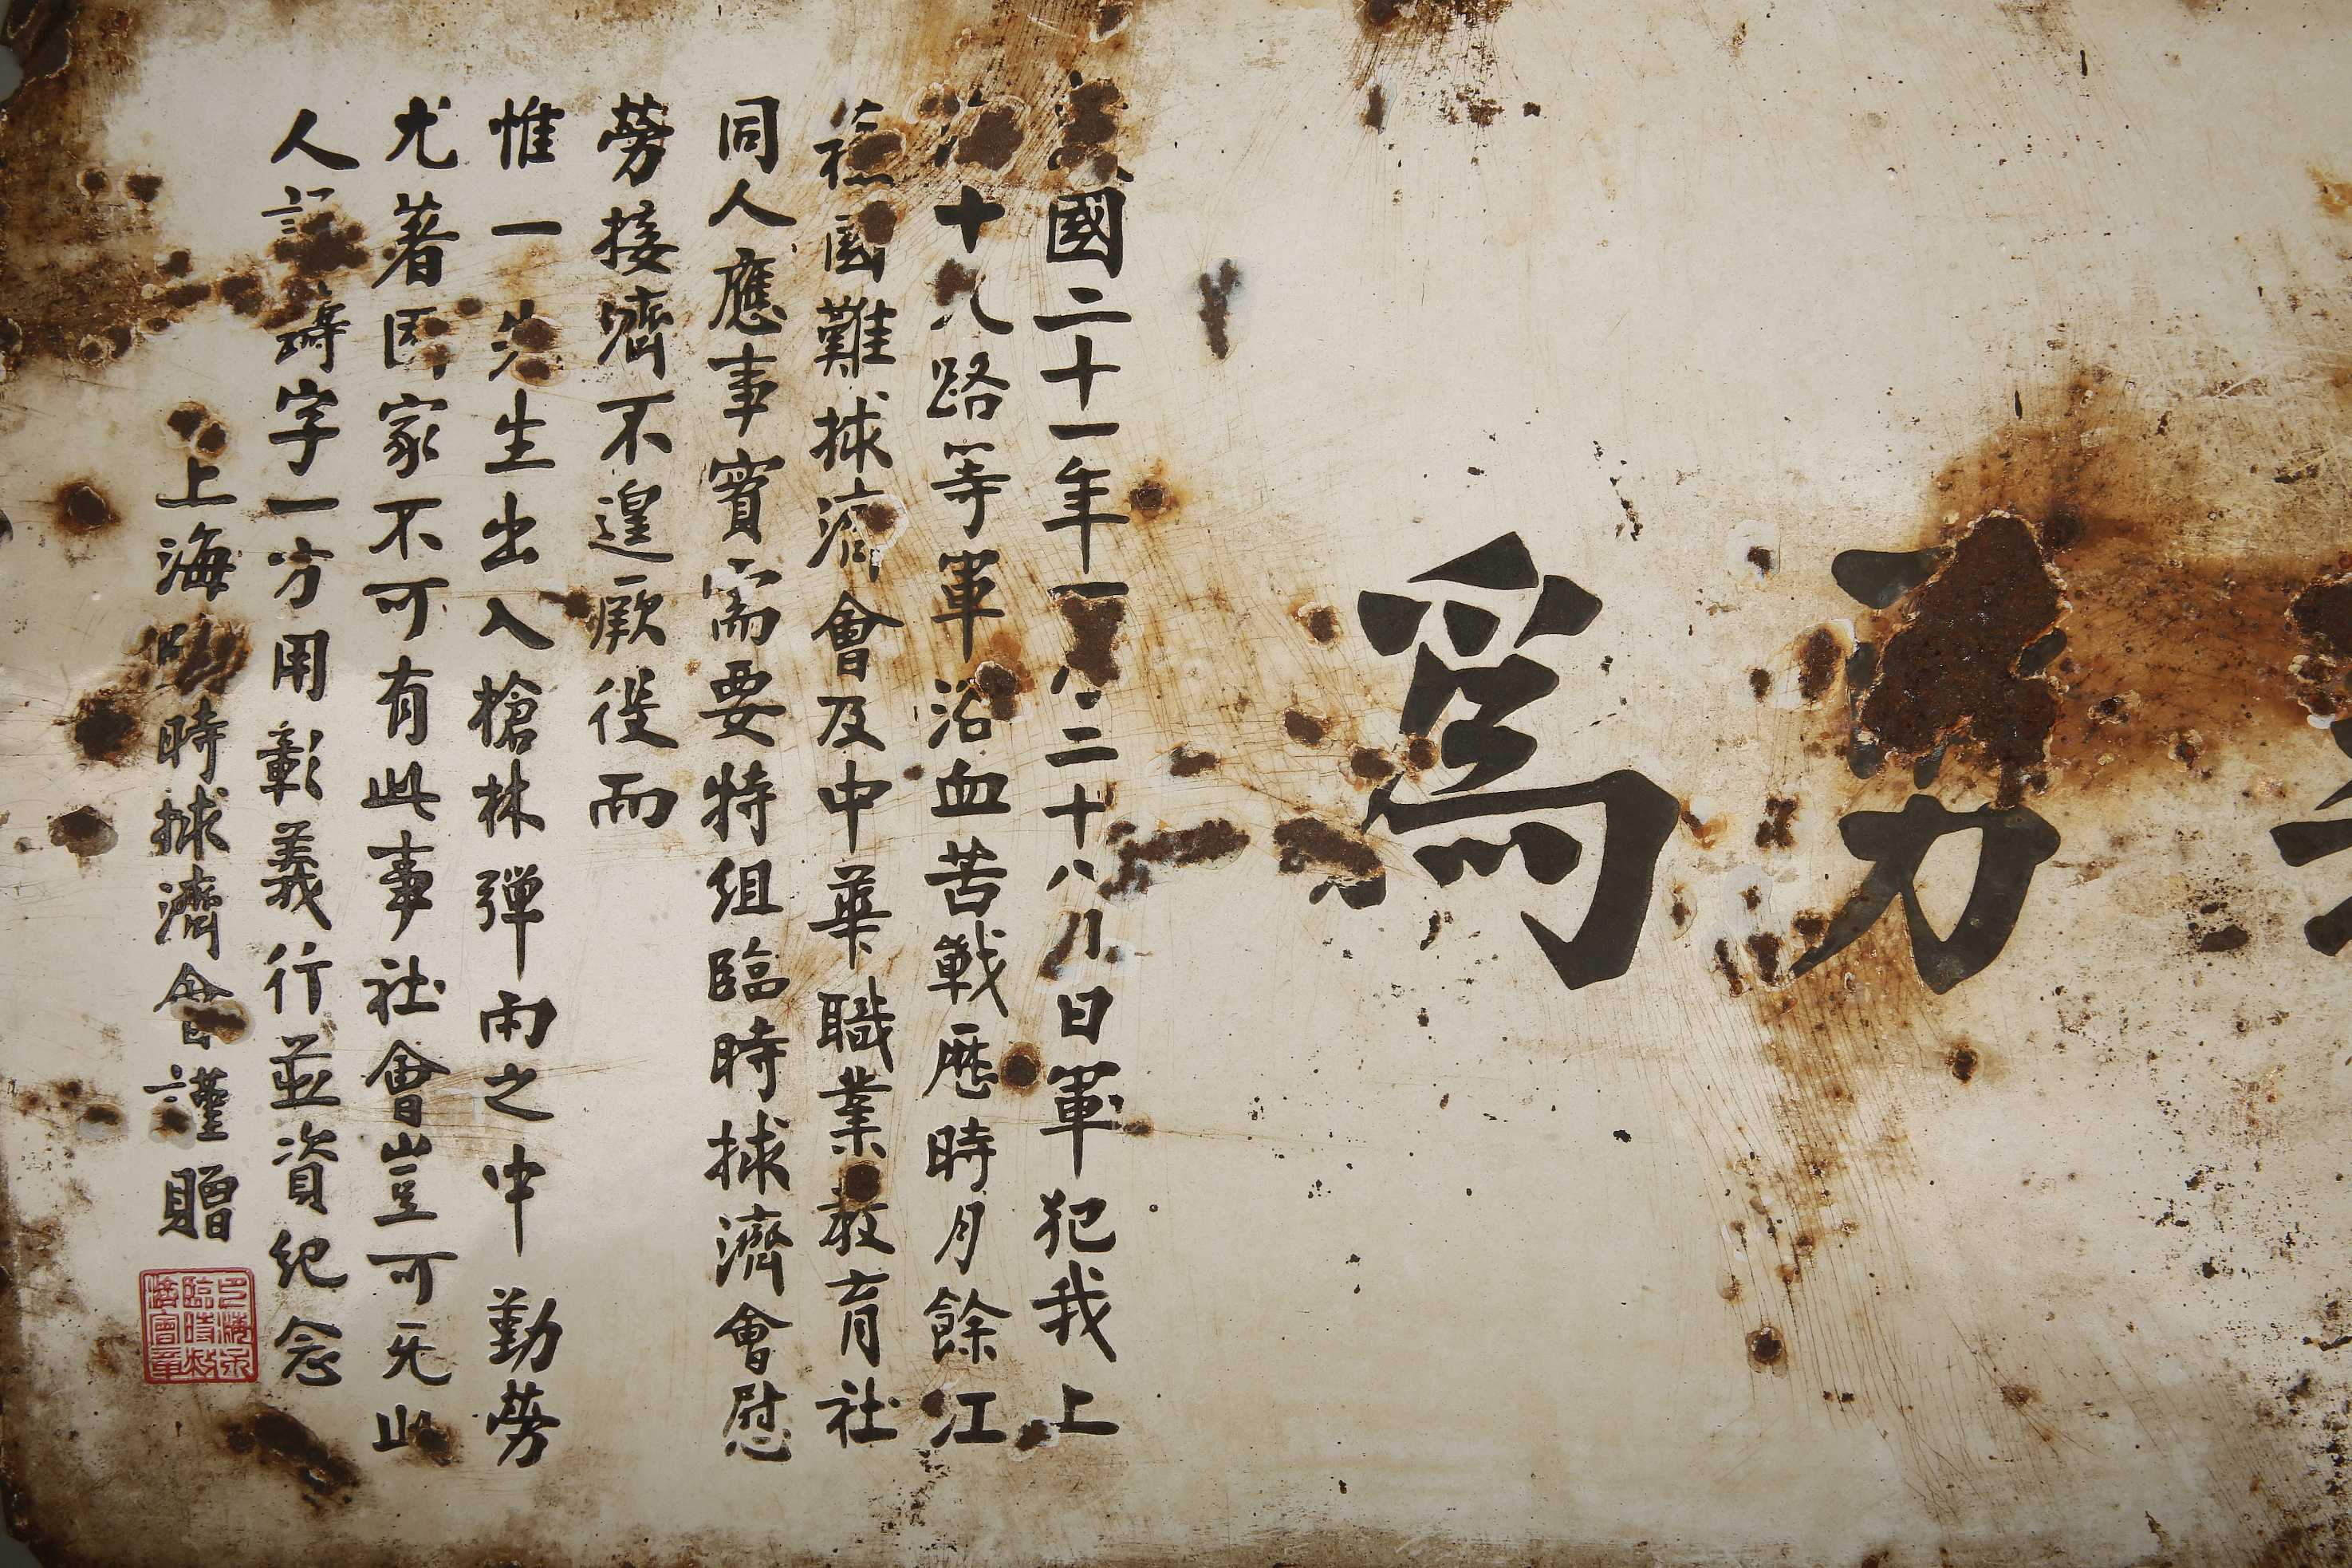 勇爲
國二十一年一月二十八日日軍犯我上
海十九路等軍浴血苦戰歷時月餘江
蘇國難捄濟會及中華職業教育社
同人應事實需要特組臨時捄濟會慰
勞接濟不遑厥役而
惟一先生出入槍林彈雨之中勤勞
尤著國家不可有此事社會豈可无此
人字一方用彰義行並資紀念
上海臨時捄濟會謹贈